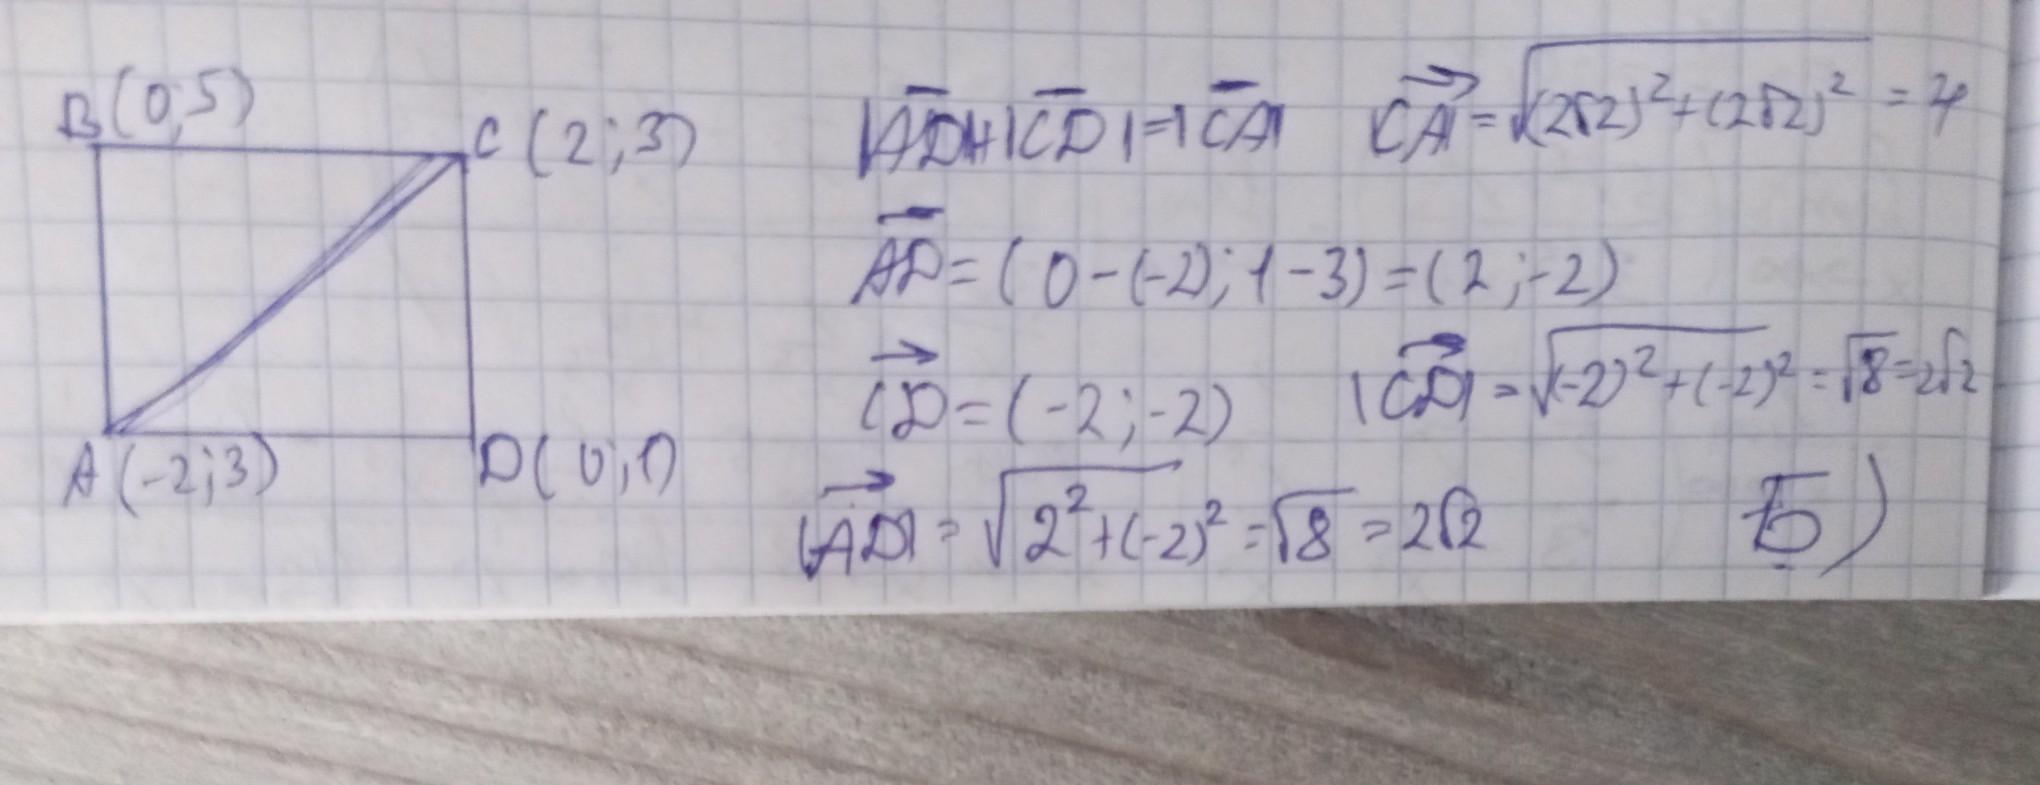 B(0;5)
C(2;3)
A(-2;3)
D(0;1)
|AD|+|CD|=|CA| |CA|=√(2√2)²+(2√2)² = 4
AD=(0-(-2);1-3)=(2;-2)
CD=(-2;-2) |CD|=√(-2)²+(-2)²=√8=2√2
|AD|=√2²+(-2)²=√8=2√2 Б)